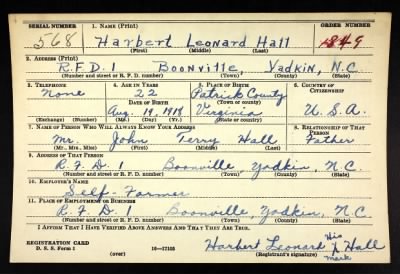 SERIAL NUMBER 1. NAME (Print) ORDER NUMBER
568 Harbert Leonard Hall 1849
(First) (Middle) (Last)
2. ADDRESS (Print)
R.F.D. 1 Boonville, Yadkin, N.C.
(Number and street or R. F. D. number) (Town) (County) (State)
3. TELEPHONE 4. AGE IN YEARS 5. PLACE OF BIRTH 6. COUNTRY OF CITIZENSHIP
None 22 Patrick County
DATE OF BIRTH (Town or county)
Aug. 19, 1918 Virginia U.S.A.
(Exchange) (Number) (Mo.) (Day) (Yr.) (State or country)
7. NAME OF PERSON WHO WILL ALWAYS KNOW YOUR ADDRESS 8. RELATIONSHIP OF THAT PERSON
Mr. John Terry Hall Father
(Mr., Mrs., Miss) (First) (Middle) (Last)
9. ADDRESS OF THAT PERSON
R.F.D. 1 Boonville, Yadkin, N.C.
(Number and street or R. F. D. number) (Town) (County) (State)
10. EMPLOYER'S NAME
Self-Farmer
11. PLACE OF EMPLOYMENT OR BUSINESS
R.F.D. 1 Boonville, Yadkin, N.C.
(Number and street or R. F. D. number) (Town) (County) (State)
I AFFIRM THAT I HAVE VERIFIED ABOVE ANSWERS AND THAT THEY ARE TRUE.
REGISTRATION CARD
D. S. S. Form 1 (over) 16—17105
Harbert Leonard His X Mark Hall
(Registrant's signature)